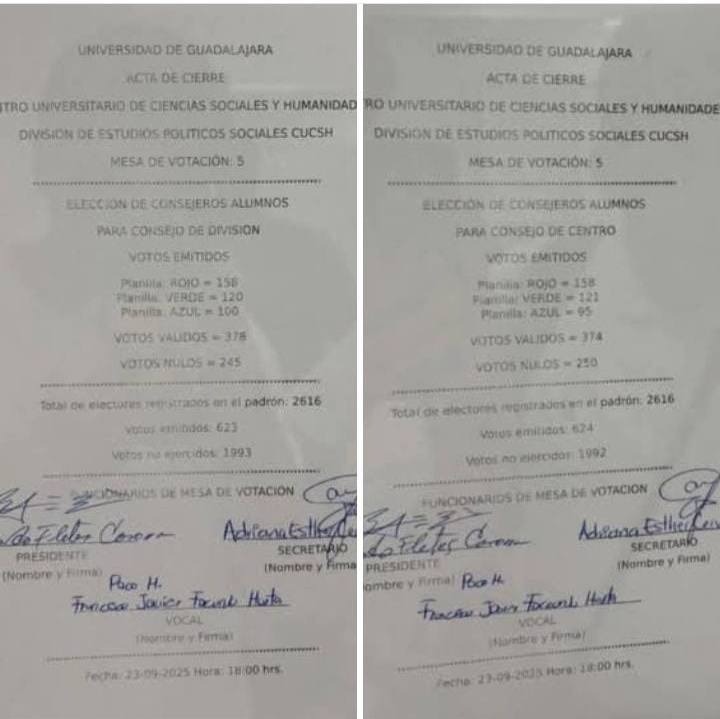 UNIVERSIDAD DE GUADALAJARA
ACTA DE CIERRE
TRO UNIVERSITARIO DE CIENCIAS SOCIALES Y HUMANIDAD
DIVISION DE ESTUDIOS POLITICOS SOCIALES CUCSH
MESA DE VOTACIÓN: 5
ELECCIÓN DE CONSEJEROS ALUMNOS
PARA CONSEJO DE DIVISION
VOTOS EMITIDOS
Planilla: ROJO = 158
Planilla: VERDE = 120
Planilla: AZUL = 100
VOTOS VALIDOS = 378
VOTOS NULOS = 245
Total de electores registrados en el padrón: 2616
Votos emitidos: 623
Votos no ejercidos: 1993
FUNCIONARIOS DE MESA DE VOTACIÓN
Adriana Esthe
PRESIDENTE
SECRETARIO
(Nombre y Firma)
(Nombre y Firma
Paco H.
Javier
VOCAL
(Nombre y Firma)
Fecha: 23-09-2025 Hora: 18:00 hrs.
UNIVERSIDAD DE GUADALAJARA
ACTA DE CIERRE
RO UNIVERSITARIO DE CIENCIAS SOCIALES Y HUMANIDADE
DIVISION DE ESTUDIOS POLITICOS SOCIALES CUCSH
MESA DE VOTACIÓN: 5
ELECCIÓN DE CONSEJEROS ALUMNOS
PARA CONSEJO DE CENTRO
VOTOS EMITIDOS
Planilla: ROJO = 158
Planilla: VERDE = 121
Planilla: AZUL = 95
VOTOS VALIDOS = 374
VOTOS NULOS = 250
Total de electores registrados en el padrón: 2616
Votos emitidos: 624
Votos no ejercidos: 1992
FUNCIONARIOS DE MESA DE VOTACIÓN
Adriana Esther
PRESIDENTE
SECRETARIO
ombre y Firma)
(Nombre y Firma)
Paco H.
VOCAL
(Nombre y Firma)
Fecha: 23-09-2025 Hora: 18:00 hrs.